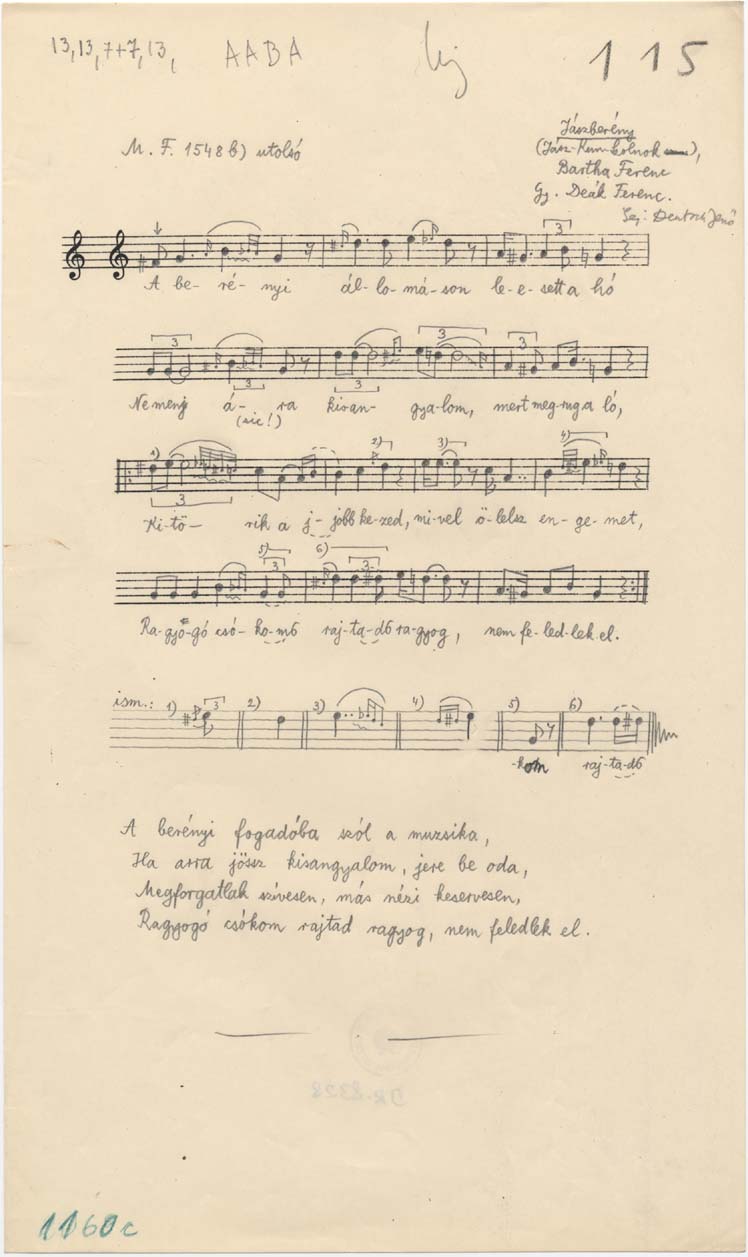 13, 13, 7+7, 13, AABA
115
M. F. 1548 b) utolsó
Jászberény
(Jász-Kun-Szolnok),
Bartha Ferenc
Gy. Deák Ferenc.
Deutsch Jenő
A be- ré- nyi ál- lo- má- son le- e- sett a hó
3
3 3 3 3
3
Ne menj á- ra kisan- gya-lom, mert meg-rúg a ló,
(sic!)
1) 2) 3) 4)
3
Ki-tö- rik a j- jobb ke-zed, mi-vel ö-lelsz en- ge- met,
5) 6)
3 3
Ra-gyo-gó csó- ko-m6 raj-ta-d6 ra-gyog, nem fe-led-lek el.
ism.: 1) 3 2) 3) 4) 5) 6)
-kom raj-ta-d6
A berényi fogadóba szól a muzsika,
Ha arra jössz kisangyalom, jere be oda,
Megforgatlak szívesen, más nézi keservesen,
Ragyogó csókom rajtad ragyog, nem feledlek el.
1160c